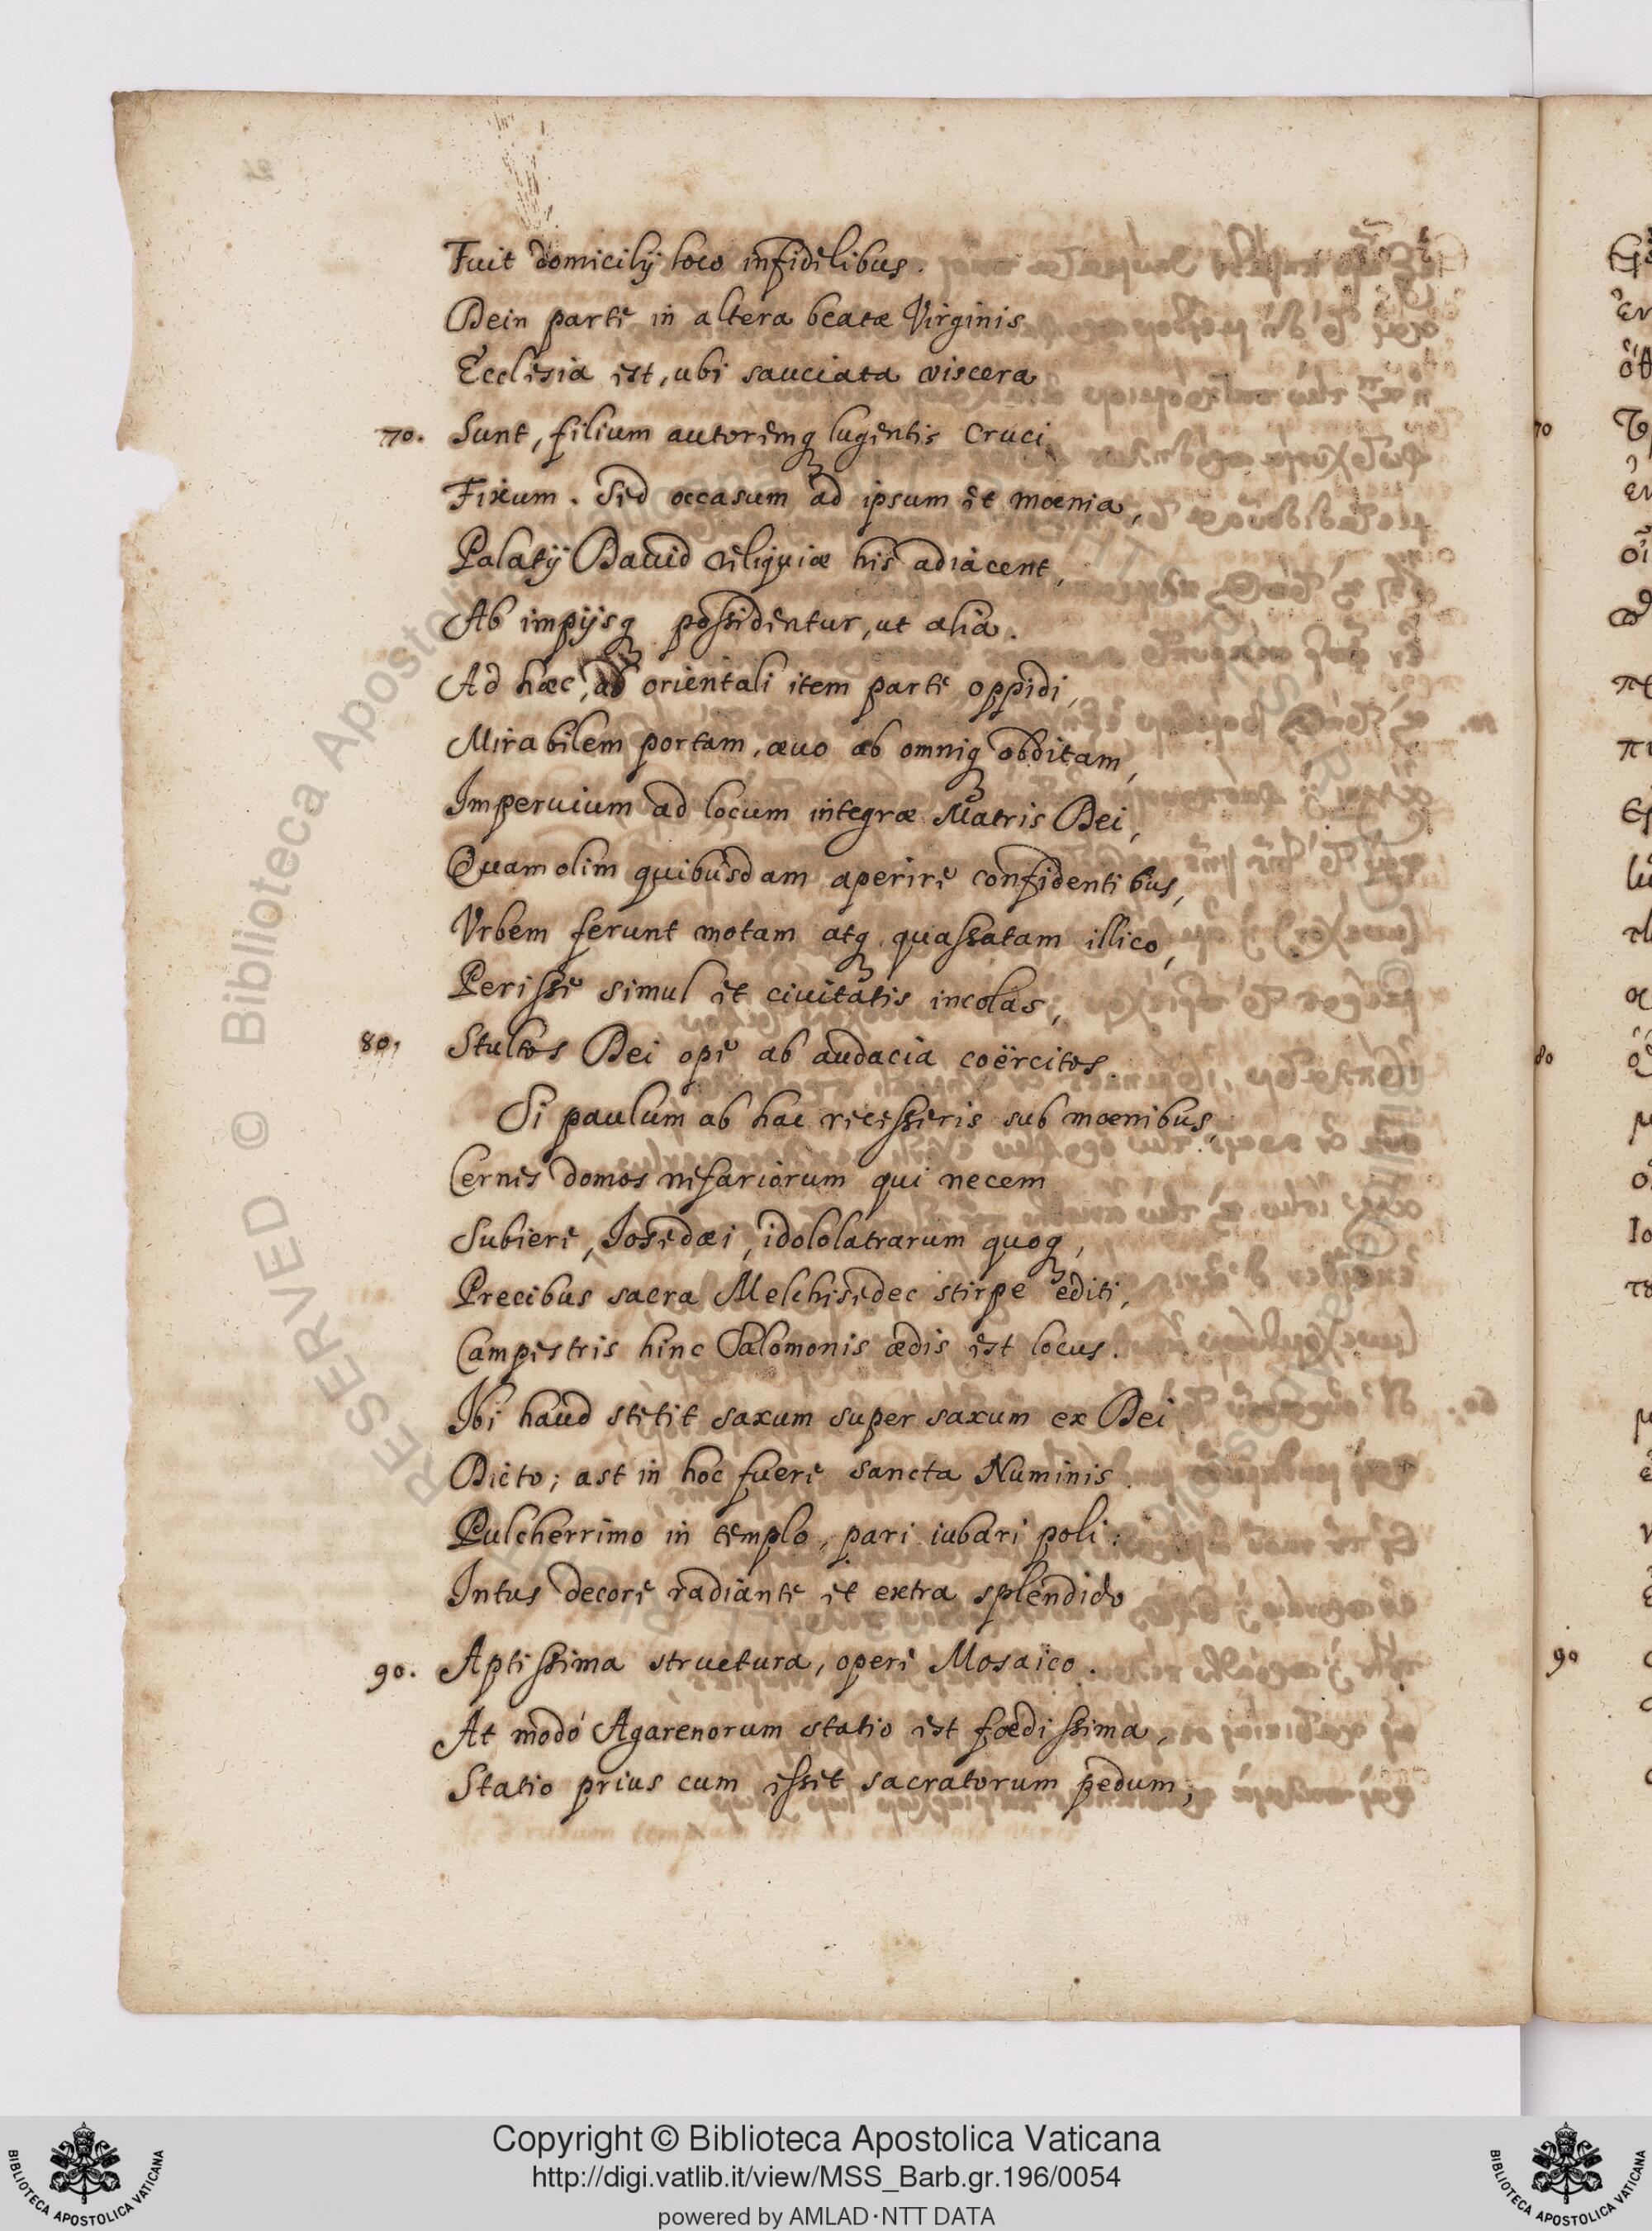 Fuit domicilij loco infidelibus.
Dein parte in altera beatæ Virginis
Ecclesia est, ubi sauciata viscera
70. Sunt, filium autoremq lugentis Cruci
Fixum. Sed occasum ad ipsum et mœnia,
Palatij Dauid reliquiæ his adiacent,
Ab impijsq possidentur, ut alia.
Ad hæc, ab orientali item parte oppidi,
Mirabilem portam, æuo ab omniq obditam,
Imperuium ad locum integræ Matris Dei,
Quam olim quibusdam aperire confidentibus,
Vrbem ferunt motam atq quassatam illico,
Perisse simul et ciuitatis incolas,
80. Stultos Dei ope ab audacia coërcitos.
Si paulum ab hac recesseris sub mœnibus,
Cernes domos nefariorum qui necem
Subiere, Iosedæi, idololatrarum quoq,
Precibus sacra Melchisedec stirpe editi,
Campestris hinc Salomonis ædis est locus.
Ibi haud stetit saxum super saxum ex Dei
Dicto; ast in hoc fuere sancta Numinis
Pulcherrimo in templo, pari iubari poli:
Intus decore radiante et extra splendido
90. Aptissima structura, opere Mosaico.
At modó Agarenorum statio est fœdissima,
Statio prius cum esset sacratorum pedum;
70
80
90
Copyright © Biblioteca Apostolica Vaticana
http://digi.vatlib.it/view/MSS_Barb.gr.196/0054
powered by AMLAD·NTT DATA
BIBLIOTECA APOSTOLICA VATICANA
BIBLIOTECA APOSTOLICA VATICANA